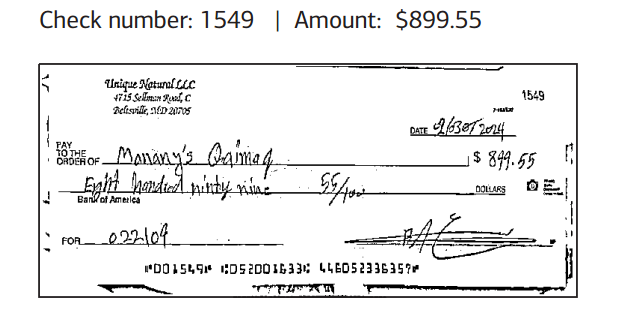 Check number: 1549 | Amount: $899.55
Unique Natural LLC
4715 Sellman Road, C
Beltsville, MD 20705
1549
DATE
PAY
TO THE
ORDER OF Manany's Qaimaq
$ 899.55
Eight hundred ninty nine 55/100 DOLLARS
Bank of America
FOR 022104
⑈001549⑈ ⑆052001633⑆ 446052336357⑈